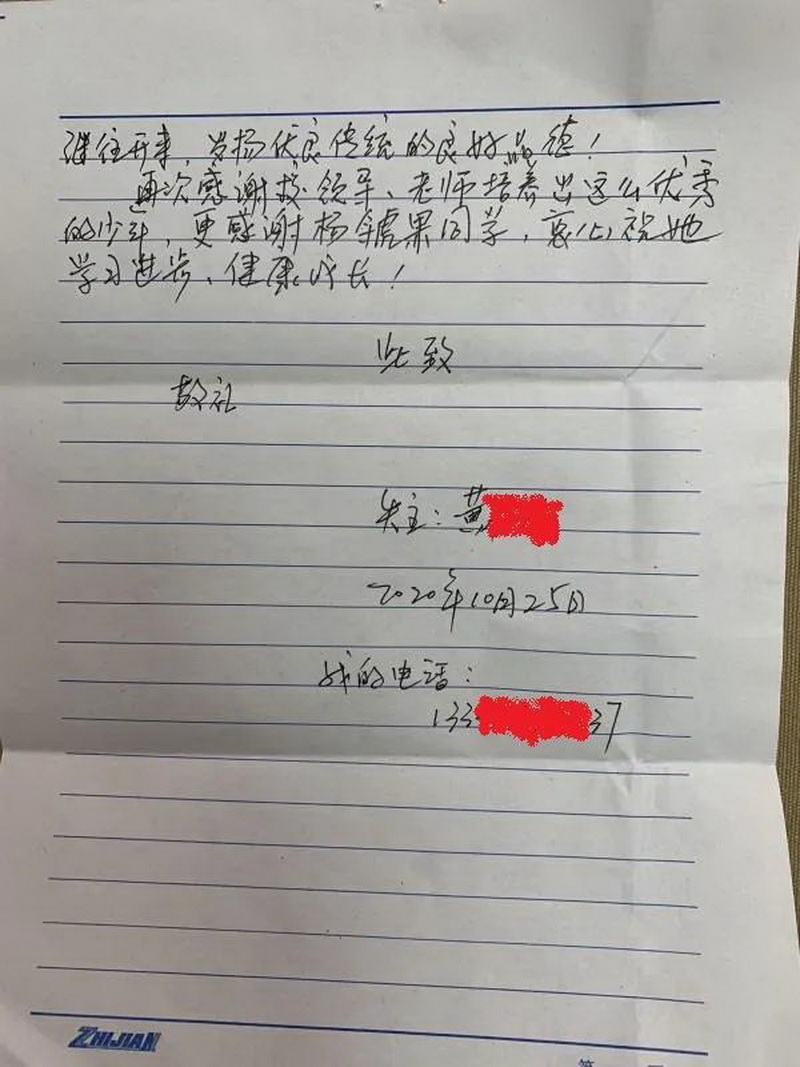 继往开来，发扬优良传统的良好品德！
再次感谢校领导、老师培养出这么优秀
的少年，更感谢杨 果同学，衷心祝她
学习进步、健康成长！
此致
敬礼
失主：黄
2020年10月25日
我的电话：
133 37
ZHIJIAN
第